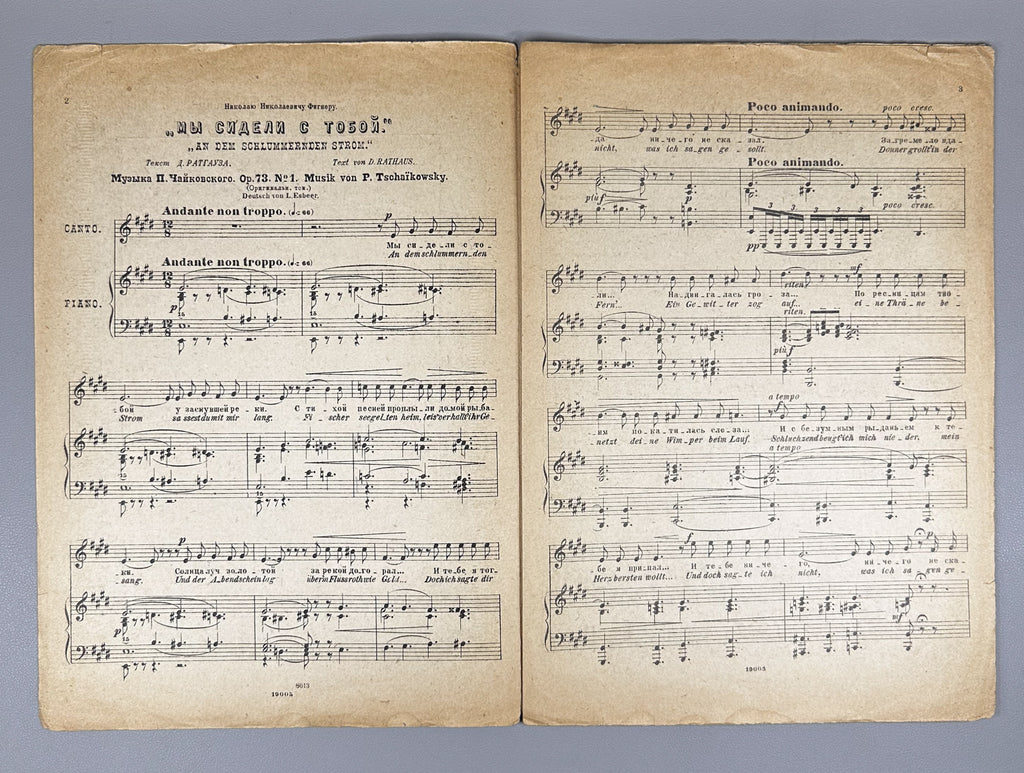 2
Николаю Николаевичу Фигнеру.
„МЫ СИДЕЛИ С ТОБОЙ.“
„AN DEM SCHLUMMERNDEN STROM.“
Текст Д. РАТГАУЗА. Text von D. RATHAUS.
Музыка П. Чайковского. Op. 73. № 1. Musik von P. Tschaïkowsky.
(Оригинальн. тон.)
Deutsch von L. Esbeer.
Andante non troppo.
p
CANTO.
12 8
Мы си_де_ли с то_
An dem schlummern_den
Andante non troppo.
PIANO.
p
бой у заснувшей ре_ки. С ти_хой песней проплы_ли до_мой ры_ба_
Strom sa ssest du mit mir lang. Fi_scher segel_ten heim, leis' verhallt' ihr Ge_
p
ки. Солнца луч золо_той за рекой до_го_рал... И те_бе я тог_
sang. Und der A_bendschein lag über'm Fluss roth wie Gold... Doch ich sagte dir
p
8613
19004
3
Poco animando. poco cresc.
да ни_че_го не ска_зал. За_гре_ме_ло вда_
nicht, was ich sa_gen ge_sollt. Donner grollt' in der
Poco animando.
più f p poco cresc.
3 3 3 3
pp
riten. mf
ли... На_дви_га_лась гро_за... По рес_ни_цам тво_
Fern'. Ein Ge_wit_ter zog auf... ei_ne Thrä_ne be_
riten.
più f
a tempo
f
им по_ка_ти_лась сле_за... И с бе_зум_ным ры_дань_ем к те_
netzt dei_ne Wim_per beim Lauf. Schluchzend beugt' ich mich nie_der, mein
a tempo
f
бе я при_пал... И те_бе ни_че_го, ни_че_го не ска_
Herz bersten wollt'... Und doch sag_te ich nicht, was ich sa_gen ge_
mf
19004